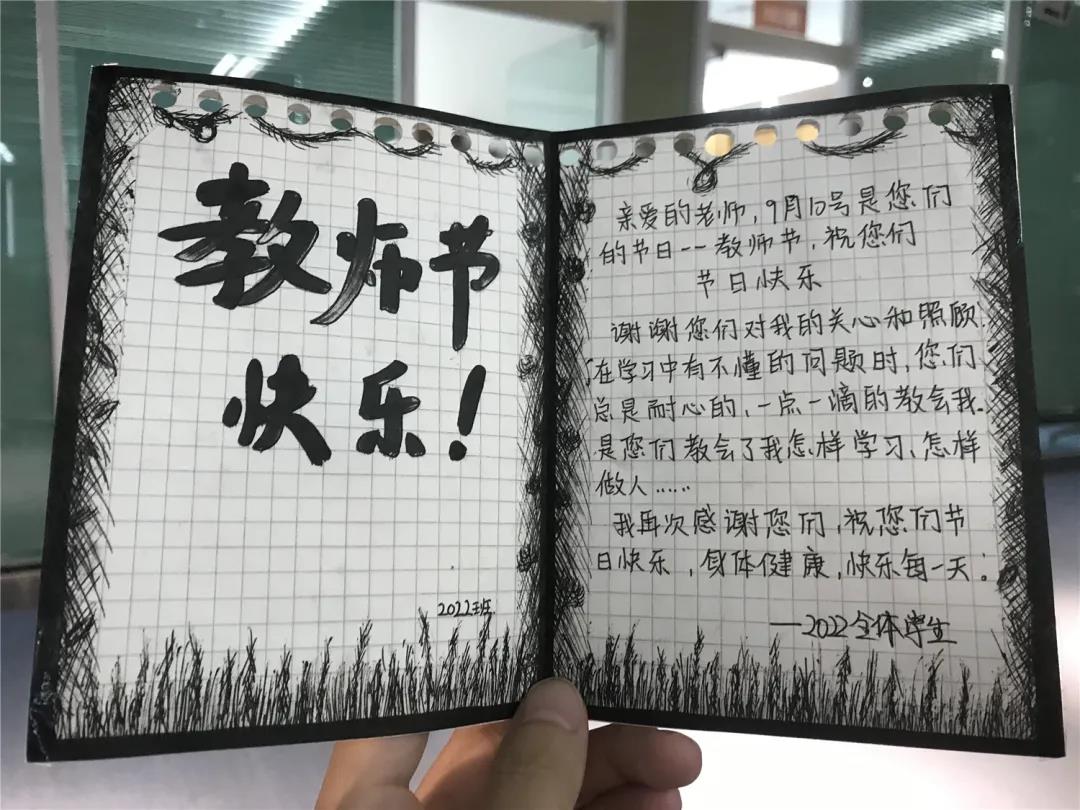 教师节
快乐！
2022班
亲爱的老师，9月10号是您们
的节日--教师节，祝您们
节日快乐
谢谢您们对我的关心和照顾，
在学习中有不懂的问题时，您们
总是耐心的，一点一滴的教会我。
是您们教会了我怎样学习、怎样
做人……
我再次感谢您们，祝您们节
日快乐，身体健康，快乐每一天！
—2022全体学生